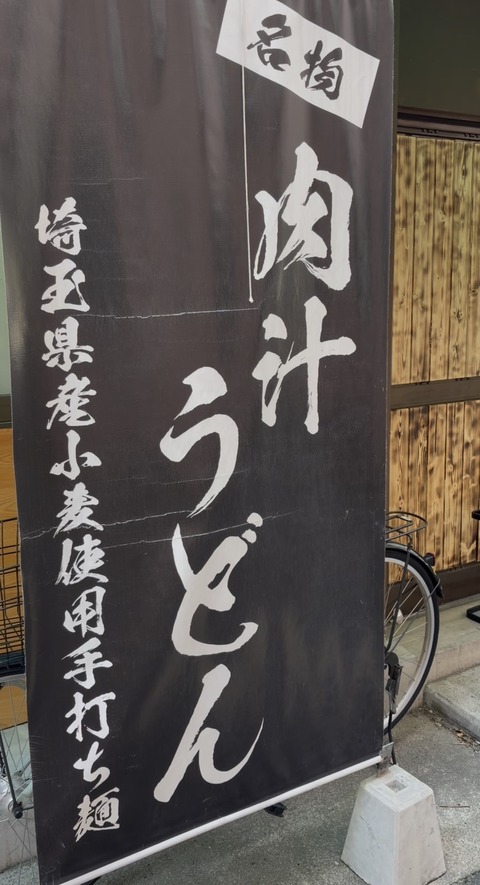 名物
肉汁
うどん
埼玉県産小麦使用手打ち麺